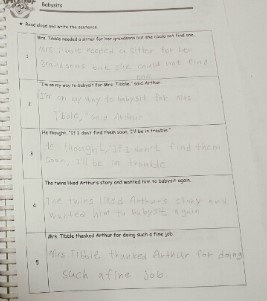 Babysits
Read aloud and write the sentence.
1
Mrs. Tibble needed a sitter for her grandsons but she could not find one.
Mrs Tibble needed a sitter for her
grandsons but she could not find
one
2
"I'm on my way to babysit for Mrs. Tibble," said Arthur.
I'm on my way to babysit for Mrs
Tibble," said Arthur
3
He thought, "If I don't find them soon, I'll be in trouble."
He thought, If I don't find them
soon, I'll be in trouble
4
The twins liked Arthur's story and wanted him to babysit again.
The twins liked Arthur's story and
wanted him to babysit again
5
Mrs. Tibble thanked Arthur for doing such a fine job.
Mrs Tibble thanked Arthur for doing
such a fine job.